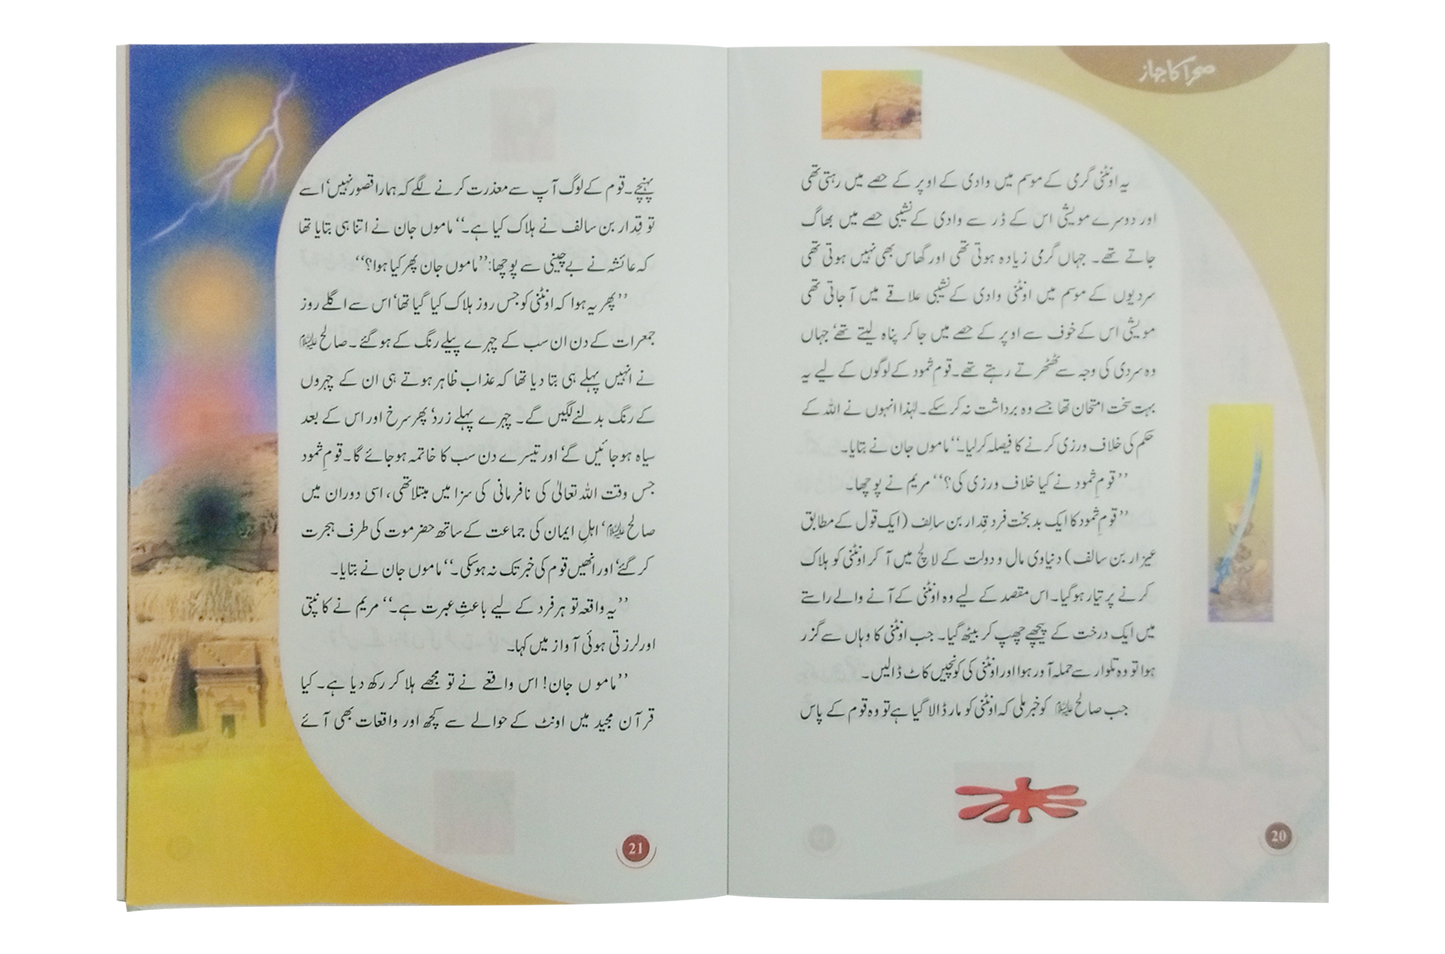 صحرا کا جہاز
یہ اونٹنی گرمی کے موسم میں وادی کے اوپر کے حصے میں رہتی تھی
اور دوسرے مویشی اس کے ڈر سے وادی کے نشیبی حصے میں بھاگ
جاتے تھے۔ جہاں گرمی زیادہ ہوتی تھی اور گھاس بھی نہیں ہوتی تھی
سردیوں کے موسم میں اونٹنی وادی کے نشیبی علاقے میں آ جاتی تھی
مویشی اس کے خوف سے اوپر کے حصے میں جا کر پناہ لیتے تھے‘ جہاں
وہ سردی کی وجہ سے ٹھٹھرتے رہتے تھے۔ قومِ ثمود کے لوگوں کے لیے یہ
بہت سخت امتحان تھا جسے وہ برداشت نہ کر سکے۔ لہٰذا انہوں نے اللہ کے
حکم کی خلاف ورزی کرنے کا فیصلہ کر لیا۔‘‘ ماموں جان نے بتایا۔
’’قومِ ثمود نے کیا خلاف ورزی کی؟‘‘ مریم نے پوچھا۔
’’قومِ ثمود کا ایک بدبخت فرد قِدار بن سالِف (ایک قول کے مطابق
عیزار بن سالف) دنیاوی مال و دولت کے لالچ میں آ کر اونٹنی کو ہلاک
کرنے پر تیار ہو گیا۔ اس مقصد کے لیے وہ اونٹنی کے آنے والے راستے
میں ایک درخت کے پیچھے چھپ کر بیٹھ گیا۔ جب اونٹنی کا وہاں سے گزر
ہوا تو وہ تلوار سے حملہ آور ہوا اور اونٹنی کی کونچیں کاٹ ڈالیں۔
جب صالح علیہ السلام کو خبر ملی کہ اونٹنی کو مار ڈالا گیا ہے تو وہ قوم کے پاس
20
پہنچے۔ قوم کے لوگ آپ سے معذرت کرنے لگے کہ ہمارا قصور نہیں‘ اسے
تو قِدار بن سالف نے ہلاک کیا ہے۔‘‘ ماموں جان نے اتنا ہی بتایا تھا
کہ عائشہ نے بے چینی سے پوچھا: ’’ماموں جان پھر کیا ہوا؟‘‘
’’پھر یہ ہوا کہ اونٹنی کو جس روز ہلاک کیا گیا تھا‘ اس سے اگلے روز
جمعرات کے دن ان سب کے چہرے پیلے رنگ کے ہو گئے۔ صالح علیہ السلام
نے انہیں پہلے ہی بتا دیا تھا کہ عذاب ظاہر ہوتے ہی ان کے چہروں
کے رنگ بدلنے لگیں گے۔ چہرے پہلے زرد‘ پھر سرخ اور اس کے بعد
سیاہ ہو جائیں گے‘ اور تیسرے دن سب کا خاتمہ ہو جائے گا۔ قومِ ثمود
جس وقت اللہ تعالیٰ کی نافرمانی کی سزا میں مبتلا تھی، اسی دوران میں
صالح علیہ السلام‘ اہلِ ایمان کی جماعت کے ساتھ حضرموت کی طرف ہجرت
کر گئے‘ اور انھیں قوم کی خبر تک نہ ہو سکی۔‘‘ ماموں جان نے بتایا۔
’’یہ واقعہ تو ہر فرد کے لیے باعثِ عبرت ہے۔‘‘ مریم نے کانپتی
اور لرزتی ہوئی آواز میں کہا۔
’’ماموں جان! اس واقعے نے تو مجھے ہلا کر رکھ دیا ہے۔ کیا
قرآن مجید میں اونٹ کے حوالے سے کچھ اور واقعات بھی آئے
21